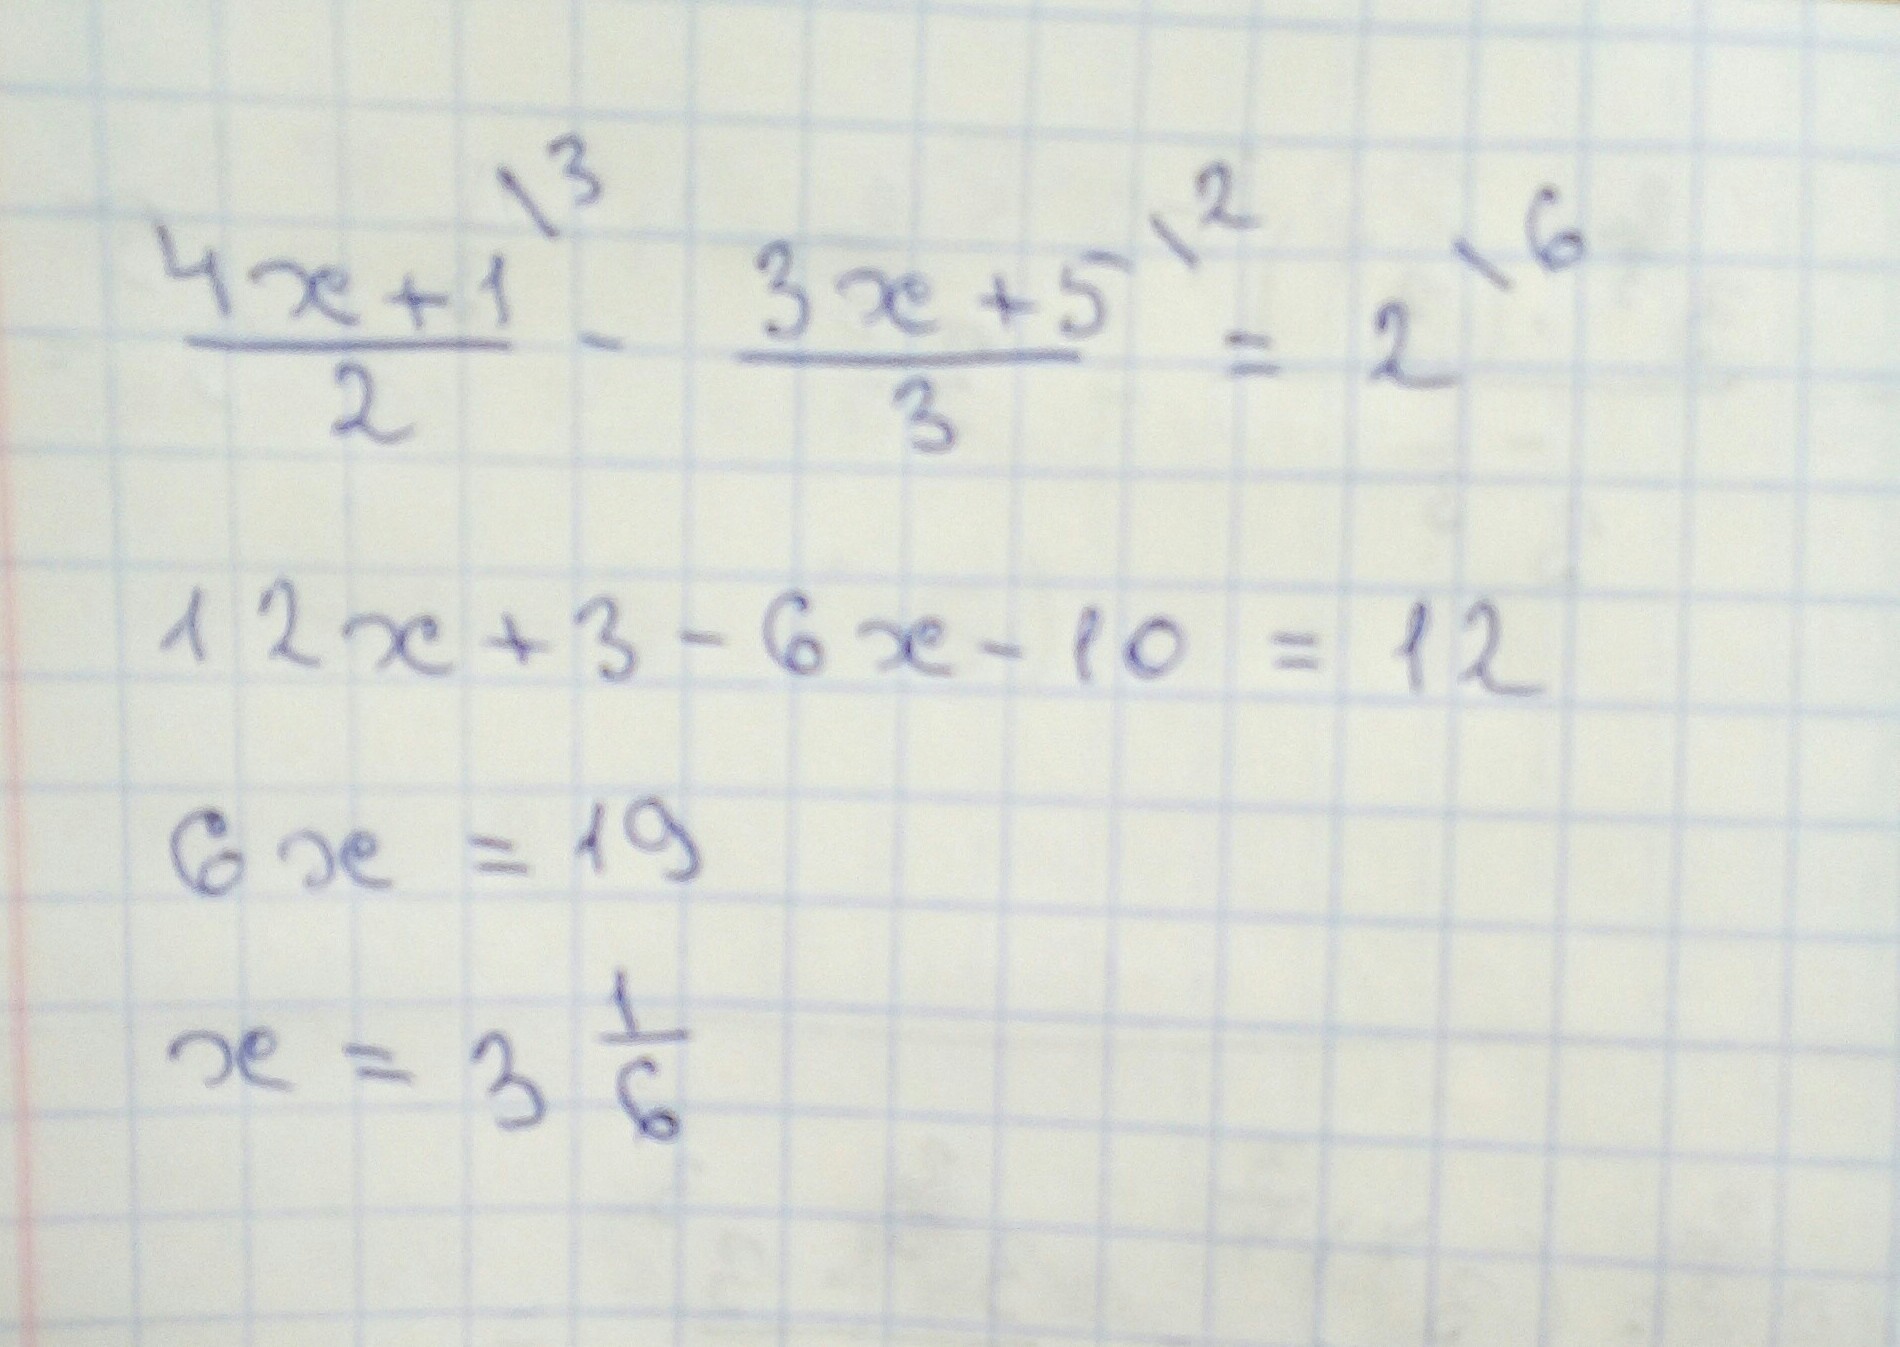 (4x+1)/2 \3 - (3x+5)/3 \2 = 2 \6
12x + 3 - 6x - 10 = 12
6x = 19
x = 3 1/6